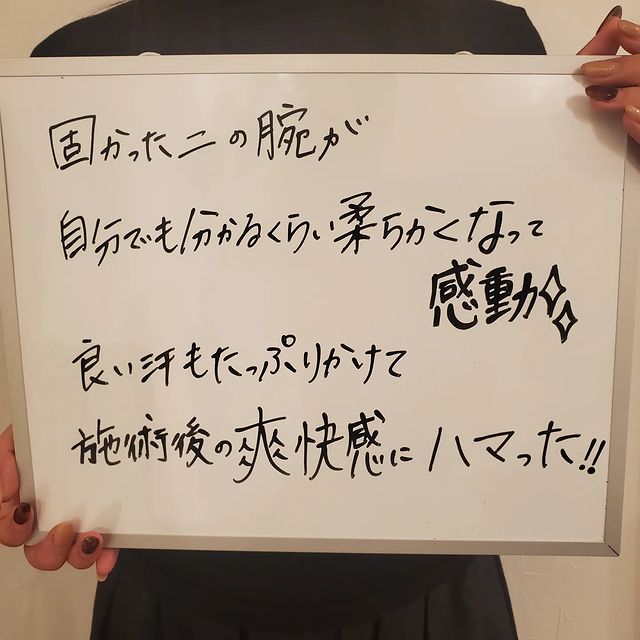 固かった二の腕が
自分でも分かるくらい柔らかくなって
感動✧✧
良い汗もたっぷりかけて
施術後の爽快感にハマった!!